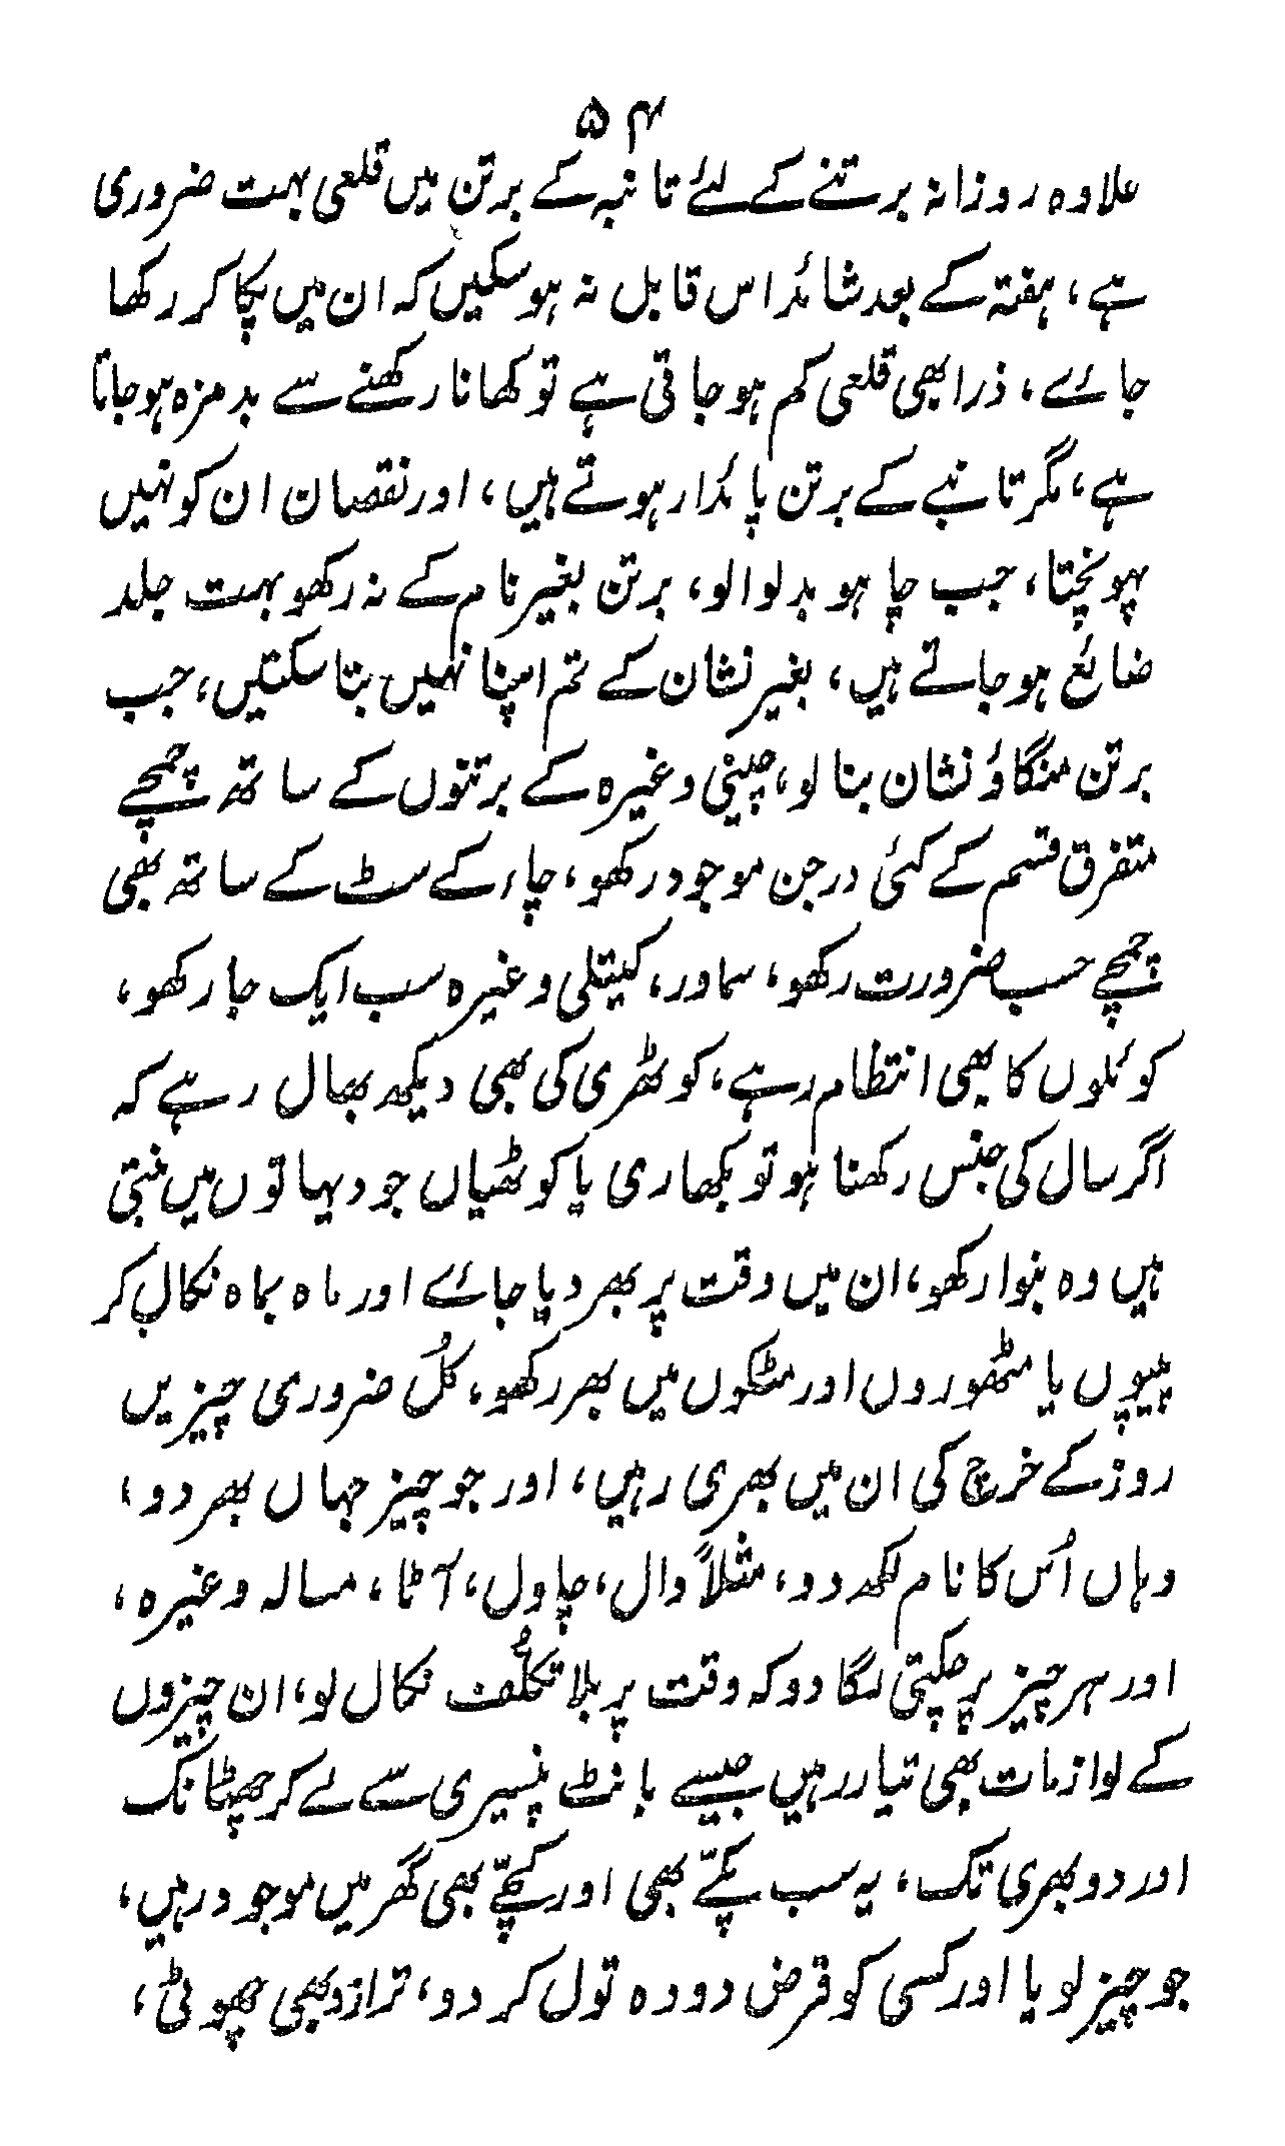 ۵۴
علاوہ روزانہ برتنے کے لئے تانبہ کے برتن میں قلعی بہت ضروری
ہے، ہفتہ کے بعد شائد اس قابل نہ ہوسکیں کہ ان میں پکا کر رکھا
جائے، ذرا بھی قلعی کم ہوجاتی ہے تو کھانا رکھنے سے بدمزہ ہوجاتا
ہے، مگر تانبے کے برتن پائدار ہوتے ہیں، اور نقصان ان کو نہیں
پہونچتا، جب چاہو بدلوالو، برتن بغیر نام کے نہ رکھو بہت جلد
ضائع ہوجاتے ہیں، بغیر نشان کے تم اپنا نہیں بتا سکتیں، جب
برتن منگاؤ نشان بنا لو، چینی وغیرہ کے برتنوں کے ساتھ چمچے
متفرق قسم کے کئی درجن موجود رکھو، چاء کے سٹ کے ساتھ بھی
چمچے حسب ضرورت رکھو، سماور، کیتلی وغیرہ سب ایک جا رکھو،
کوئلوں کا بھی انتظام رہے، کوٹھری کی بھی دیکھ بھال رہے کہ
اگر سال کی جنس رکھنا ہو تو بکھاری یا کوٹھیاں جو دیہاتوں میں بنتی
ہیں وہ بنوا رکھو، ان میں وقت پر بھر دیا جائے اور ماہ بماہ نکال کر
پیپوں یا مٹھوروں اور مٹکوں میں بھر رکھو، کُل ضروری چیزیں
روز کے خرچ کی ان میں بھری رہیں، اور جو چیز جہاں بھر دو،
وہاں اُس کا نام لکھ دو، مثلاً دال، چاول، آٹا، مسالہ وغیرہ،
اور ہر چیز پر چپکتی لگا دو کہ وقت پر بلا تکلُّف نکال لو، ان چیزوں
کے لوازمات بھی تیار رہیں جیسے بانٹ پنسیری سے لے کر چھٹانک
اور دوبھری تک، یہ سب پکّے بھی اور کچّے بھی گھر میں موجود رہیں،
جو چیز لو یا اور کسی کو قرض دو وہ تول کر دو، ترازو بھی چھوٹی،